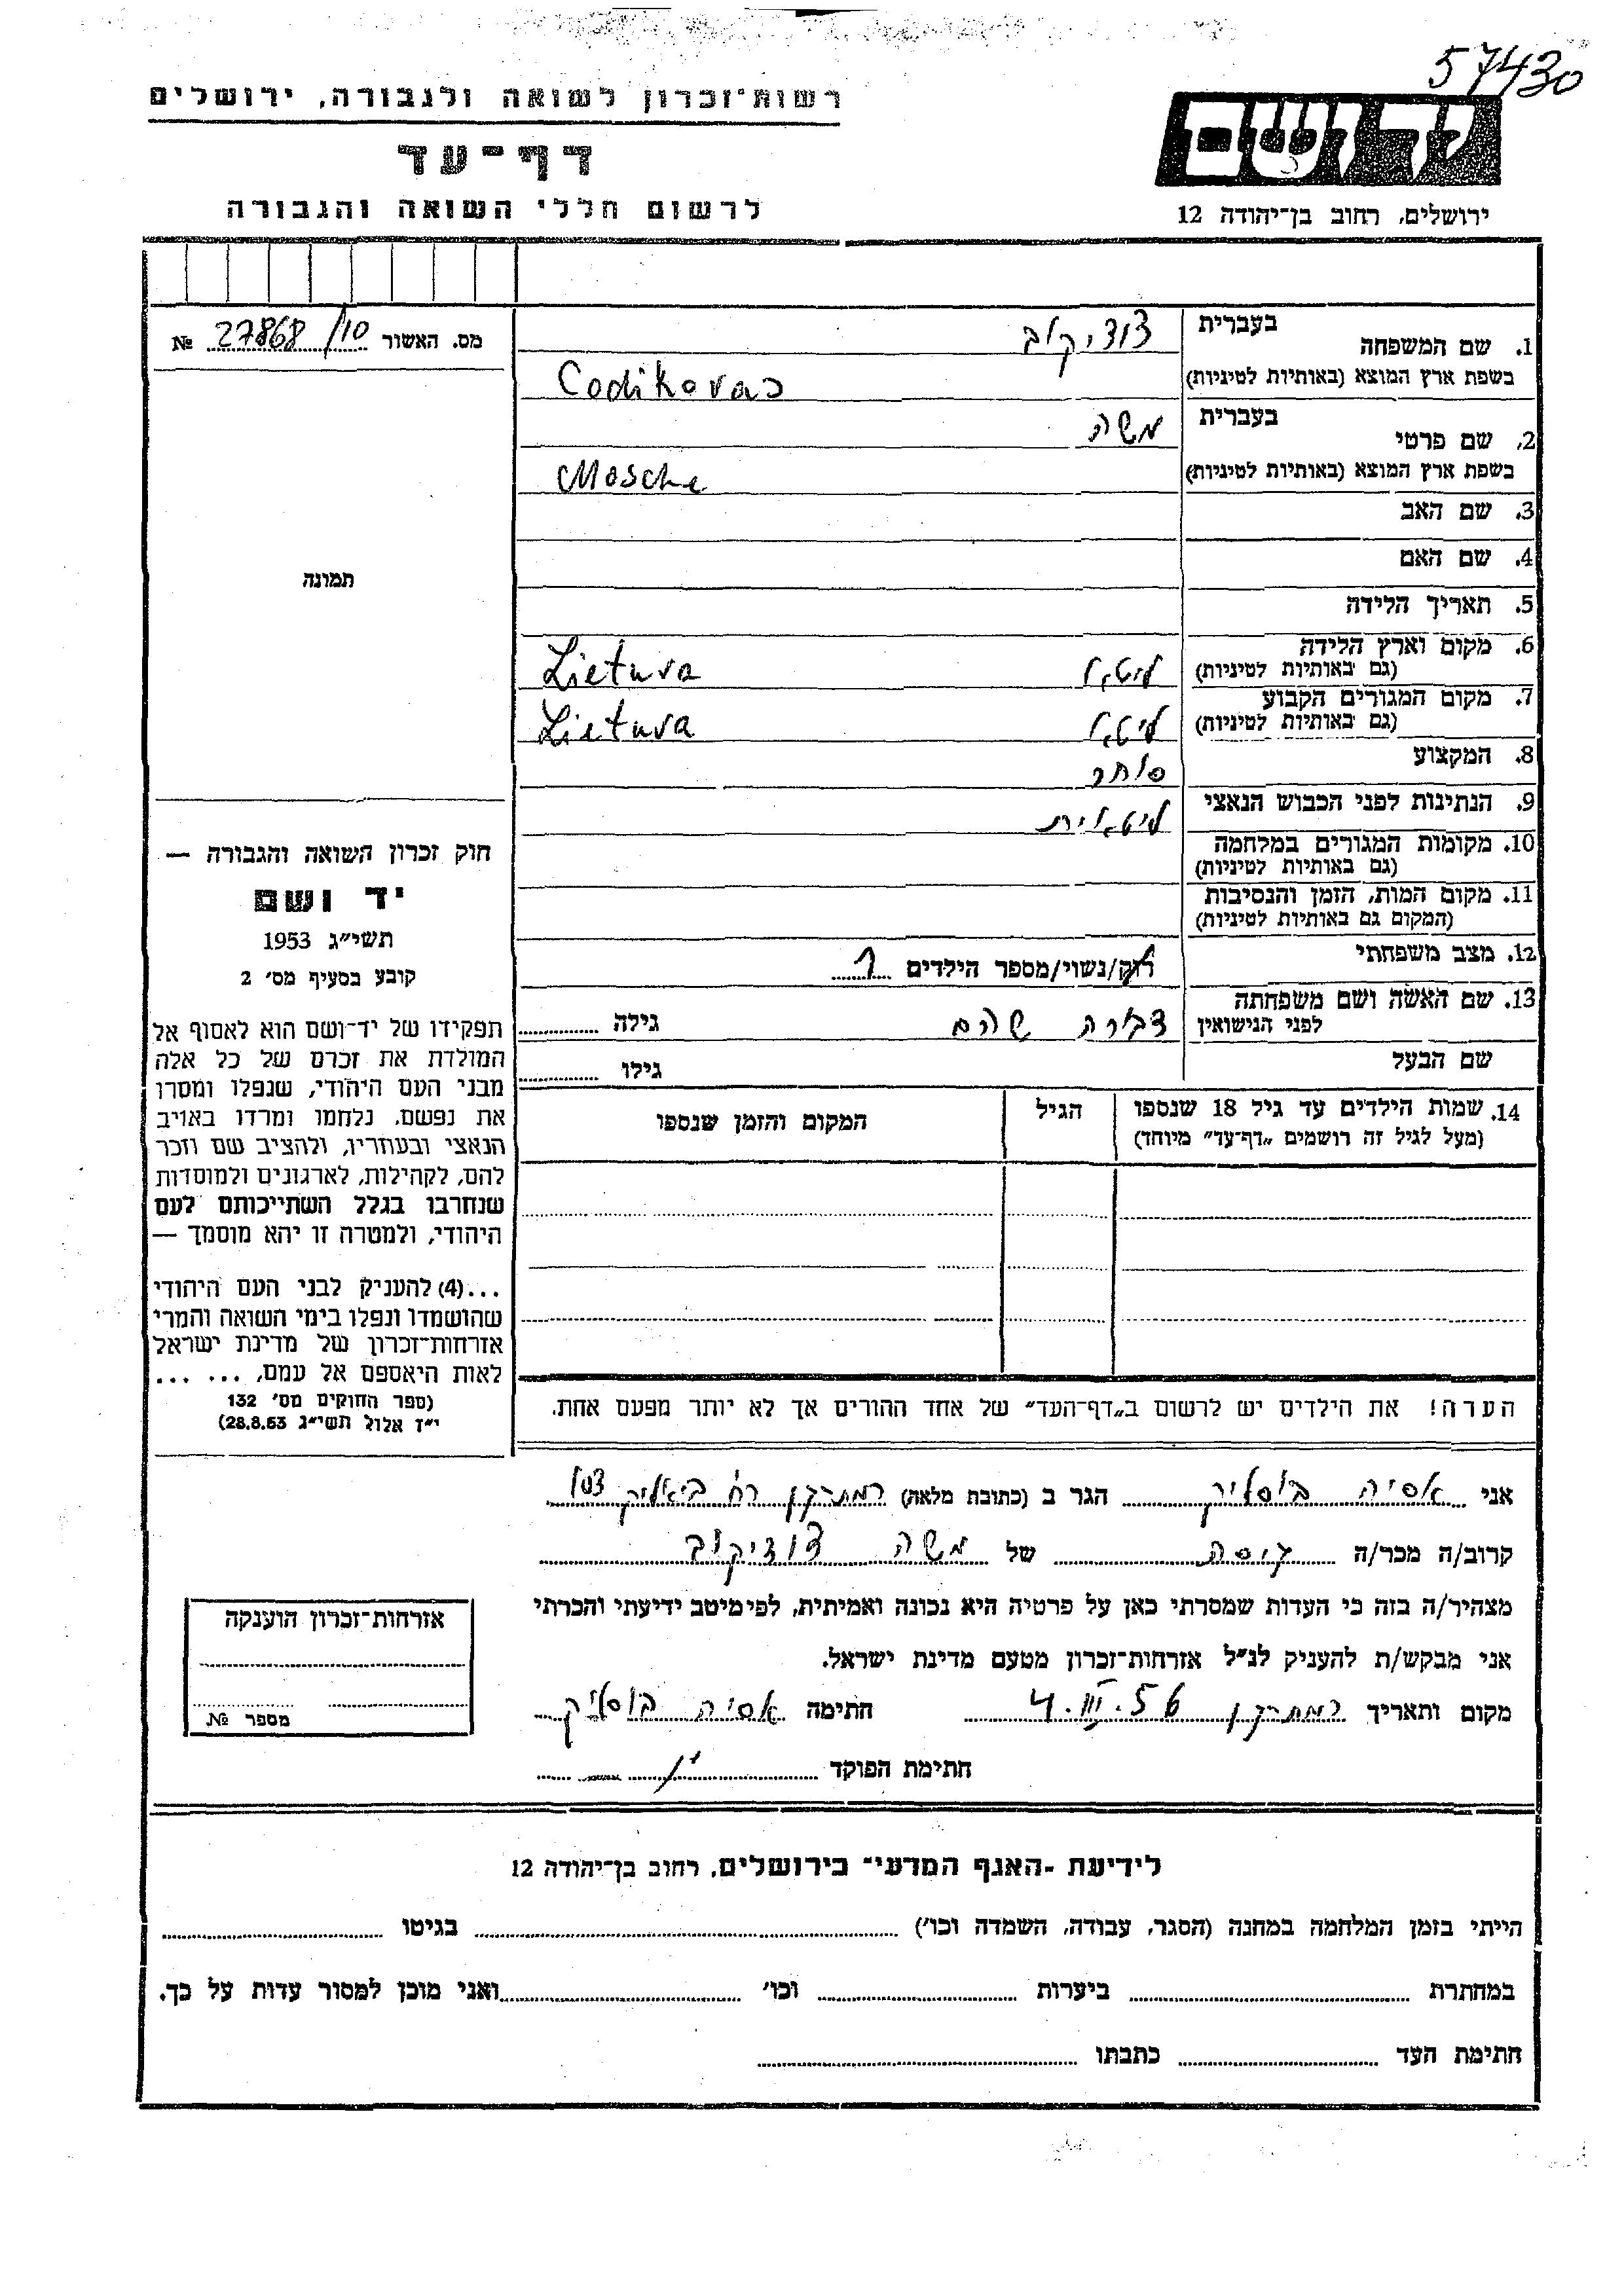 57430
רשות־זכרון לשואה ולגבורה, ירושלים
דף־עד
לרשום חללי השואה והגבורה
יד ושם
ירושלים, רחוב בן־יהודה 12
מס. האשור № 27868/10
1. שם המשפחה בעברית צודיקוב
בשפת ארץ המוצא (באותיות לטיניות) Codikovas
2. שם פרטי בעברית משה
בשפת ארץ המוצא (באותיות לטיניות) Mosche
3. שם האב
4. שם האם
5. תאריך הלידה
6. מקום וארץ הלידה
(גם באותיות לטיניות) ליטא Lietuva
7. מקום המגורים הקבוע
(גם באותיות לטיניות) ליטא Lietuva
8. המקצוע סוחר
9. הנתינות לפני הכבוש הנאצי ליטאית
10. מקומות המגורים במלחמה
(גם באותיות לטיניות)
11. מקום המות, הזמן והנסיבות
(המקום גם באותיות לטיניות)
12. מצב משפחתי רוק/נשוי/מספר הילדים
13. שם האשה ושם משפחתה
לפני הנישואין דבורה שהם גילה
שם הבעל גילו
14. שמות הילדים עד גיל 18 שנספו
(מעל לגיל זה רושמים „דף־עד” מיוחד)
הגיל
המקום והזמן שנספו
הערה! את הילדים יש לרשום ב„דף־העד” של אחד ההורים אך לא יותר מפעם אחת.
תמונה
חוק זכרון השואה והגבורה —
יד ושם
תשי״ג 1953
קובע בסעיף מס׳ 2
תפקידו של יד־ושם הוא לאסוף אל
המולדת את זכרם של כל אלה
מבני העם היהודי, שנפלו ומסרו
את נפשם, נלחמו ומרדו באויב
הנאצי ובעוזריו, ולהציב שם וזכר
להם, לקהילות, לארגונים ולמוסדות
שנחרבו בגלל השתייכותם לעם
היהודי, ולמטרה זו יהא מוסמך —
...(4) להעניק לבני העם היהודי
שהושמדו ונפלו בימי השואה והמרי
אזרחות־זכרון של מדינת ישראל
לאות היאספם אל עמם, ... ...
(ספר החוקים מס׳ 132
י״ז אלול תשי״ג 28.8.53)
אני אסיה בוסליק הגר ב (כתובת מלאה) רמת גן רח ביאליק 103
קרוב/ה מכר/ה גיסה של משה צודיקוב
מצהיר/ה בזה כי העדות שמסרתי כאן על פרטיה היא נכונה ואמיתית, לפי מיטב ידיעתי והכרתי
אני מבקש/ת להעניק לנ״ל אזרחות־זכרון מטעם מדינת ישראל.
מקום ותאריך רמת גן 4.III.56 חתימה אסיה בוסליק
חתימת הפוקד
אזרחות־זכרון הוענקה
מספר №
לידיעת -האגף המדעי־ בירושלים, רחוב בן־יהודה 12
הייתי בזמן המלחמה במחנה (הסגר, עבודה, השמדה וכו׳) בגיטו
במחתרת ביערות וכו׳ ואני מוכן למסור עדות על כך.
חתימת העד כתבתו